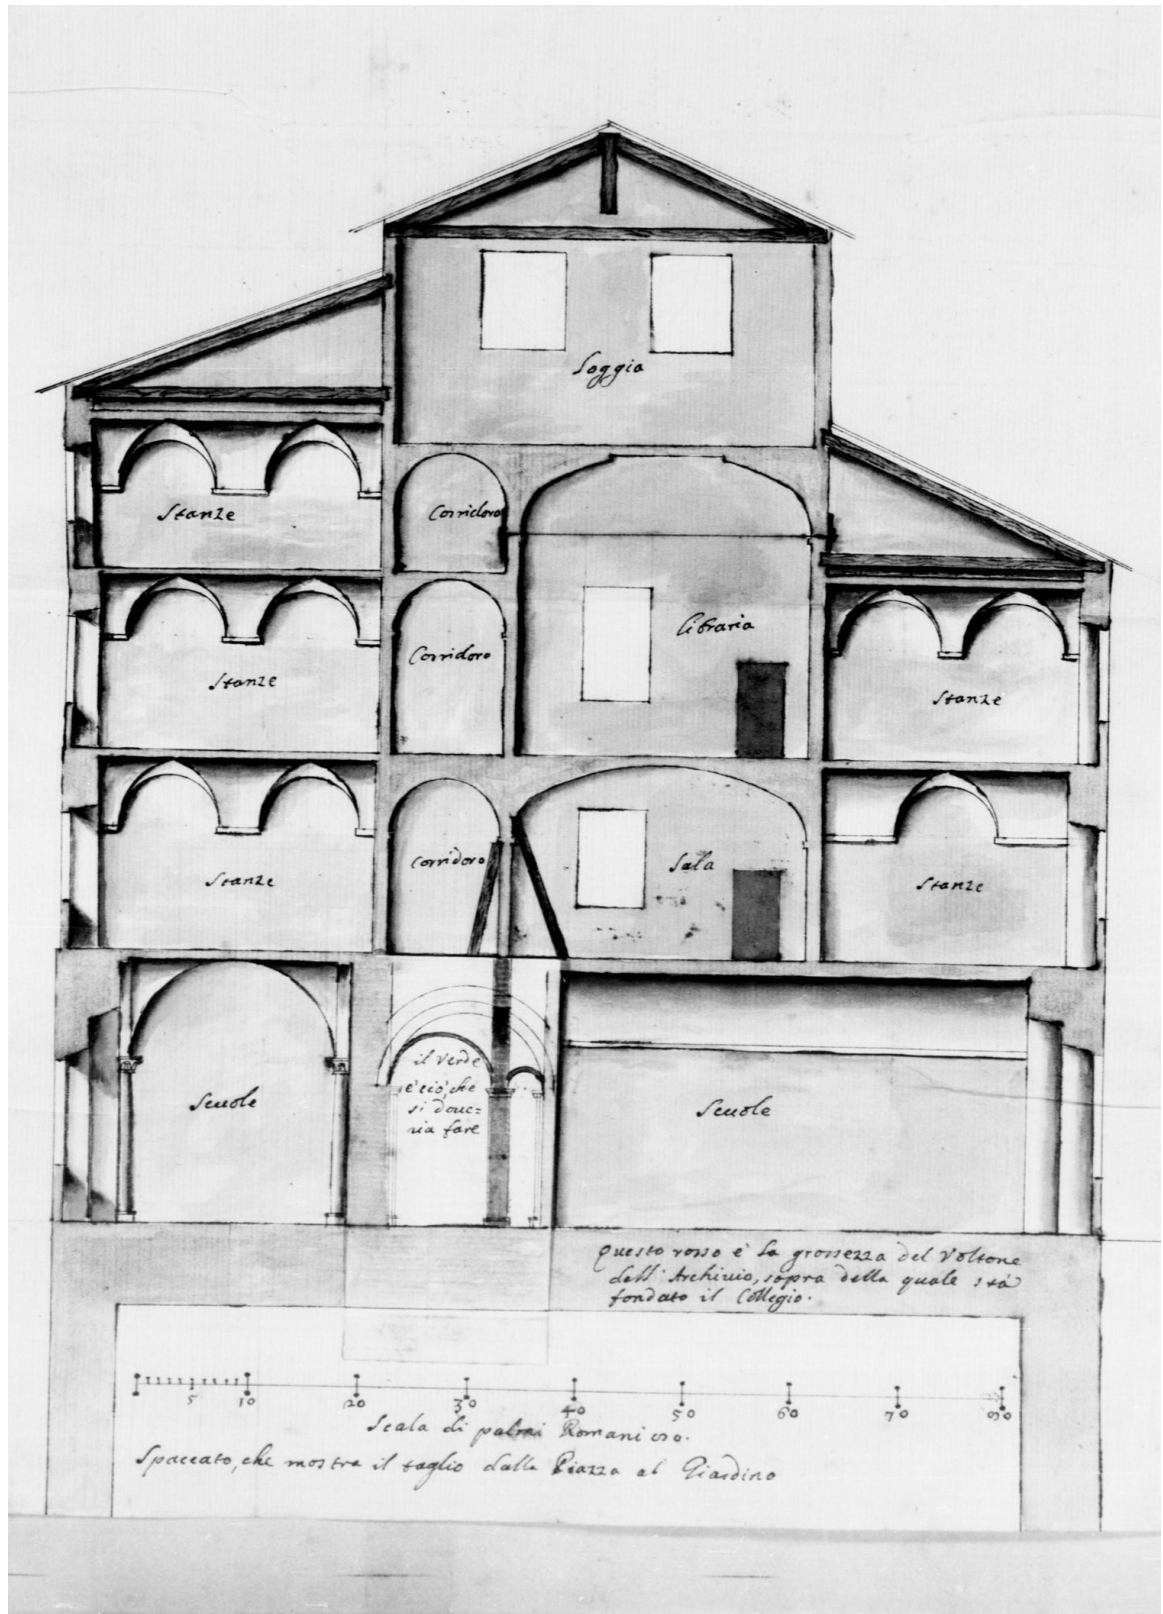 Loggia
Stanze
Corridoro
Corridoro
Libraria
Stanze
Stanze
Corridoro
Sala
Stanze
Stanze
Scuole
il verde
è ciò, che
si doue=
ria fare
Scuole
Questo rosso è la grossezza del Voltone
dell' Archiuio, sopra della quale stà
fondato il Collegio.
5 10 20 30 40 50 60 70
Scala di palmi Romani
Spaccato, che mostra il taglio dalla Piazza al Giardino